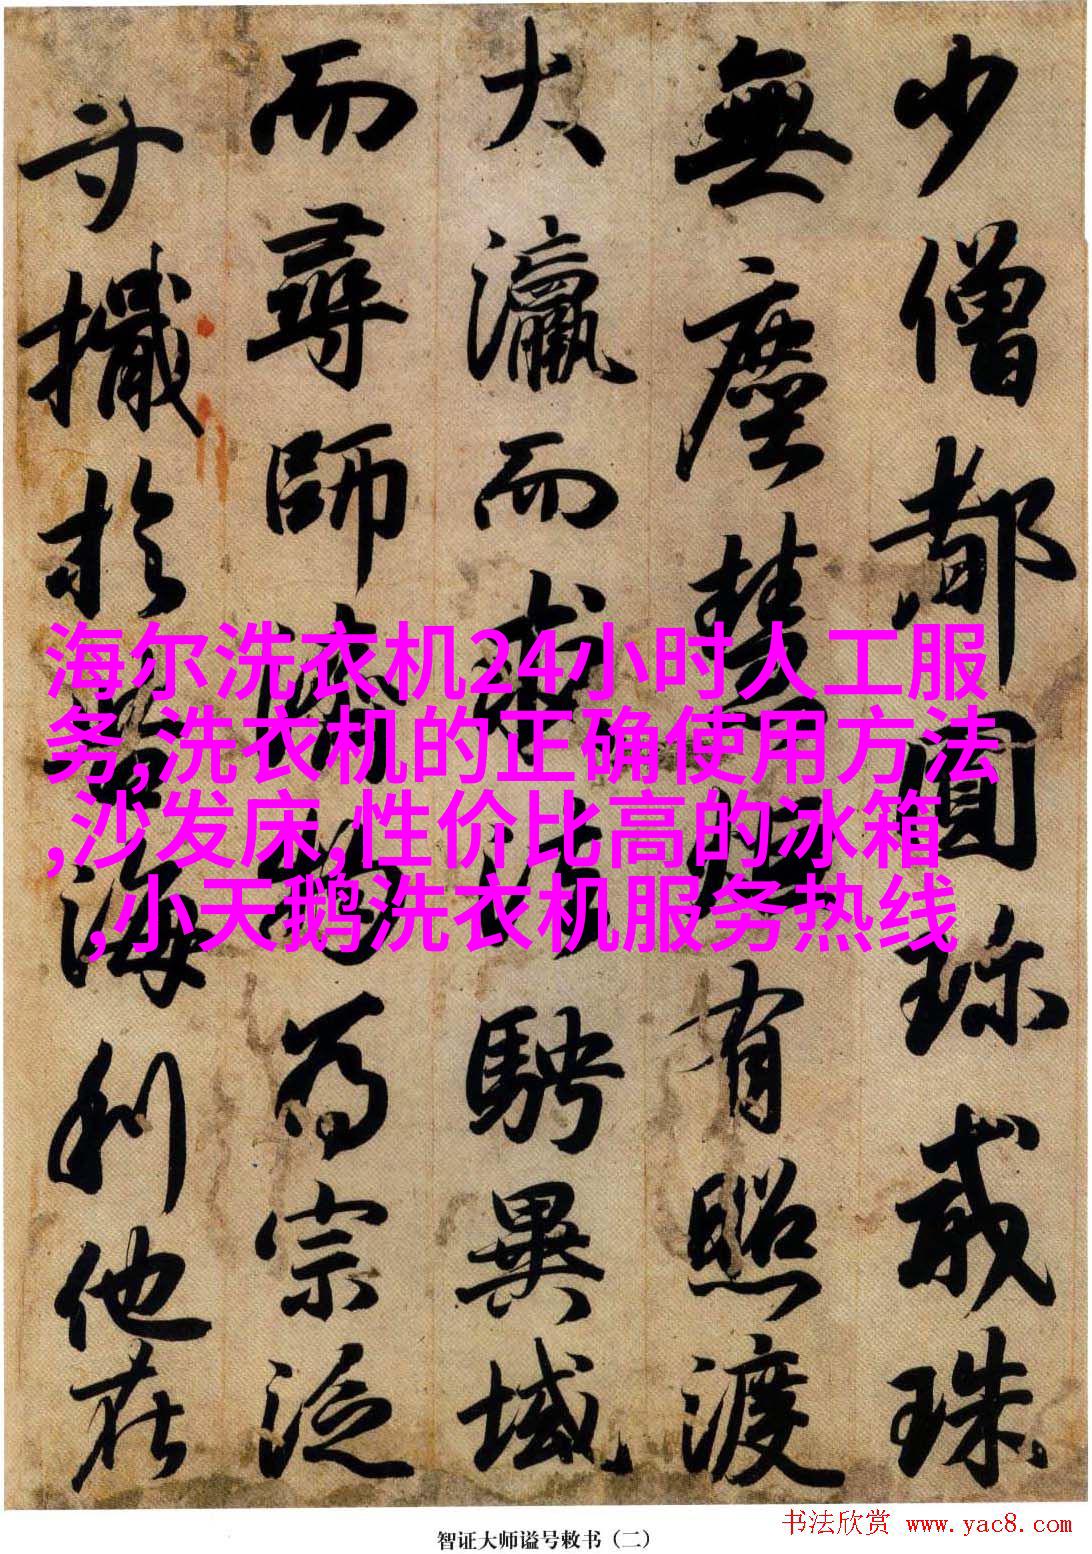 少僧都圓珍戒珠
無塵慧炬有照渡
大瀛而求法騁異域
而尋師為宗泛
寸檝於海利他在
海尔洗衣机24小时人工服
务,洗衣机的正确使用方法
,沙发床,性价比高的冰箱
,小天鹅洗衣机服务热线
智证大师谥号敕书（二）
书法欣赏 www.yac8.com